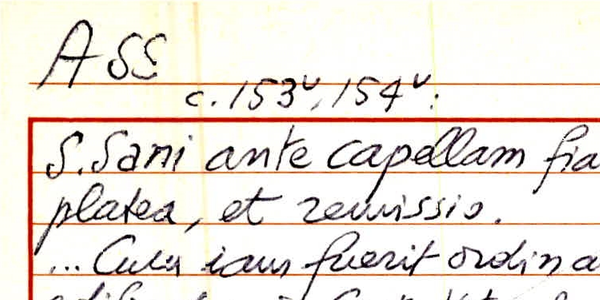 ASS
c. 153v, 154v:
S. Sani ante capellam fia
platea, et remissio.
... Cum iam fuerit ordina